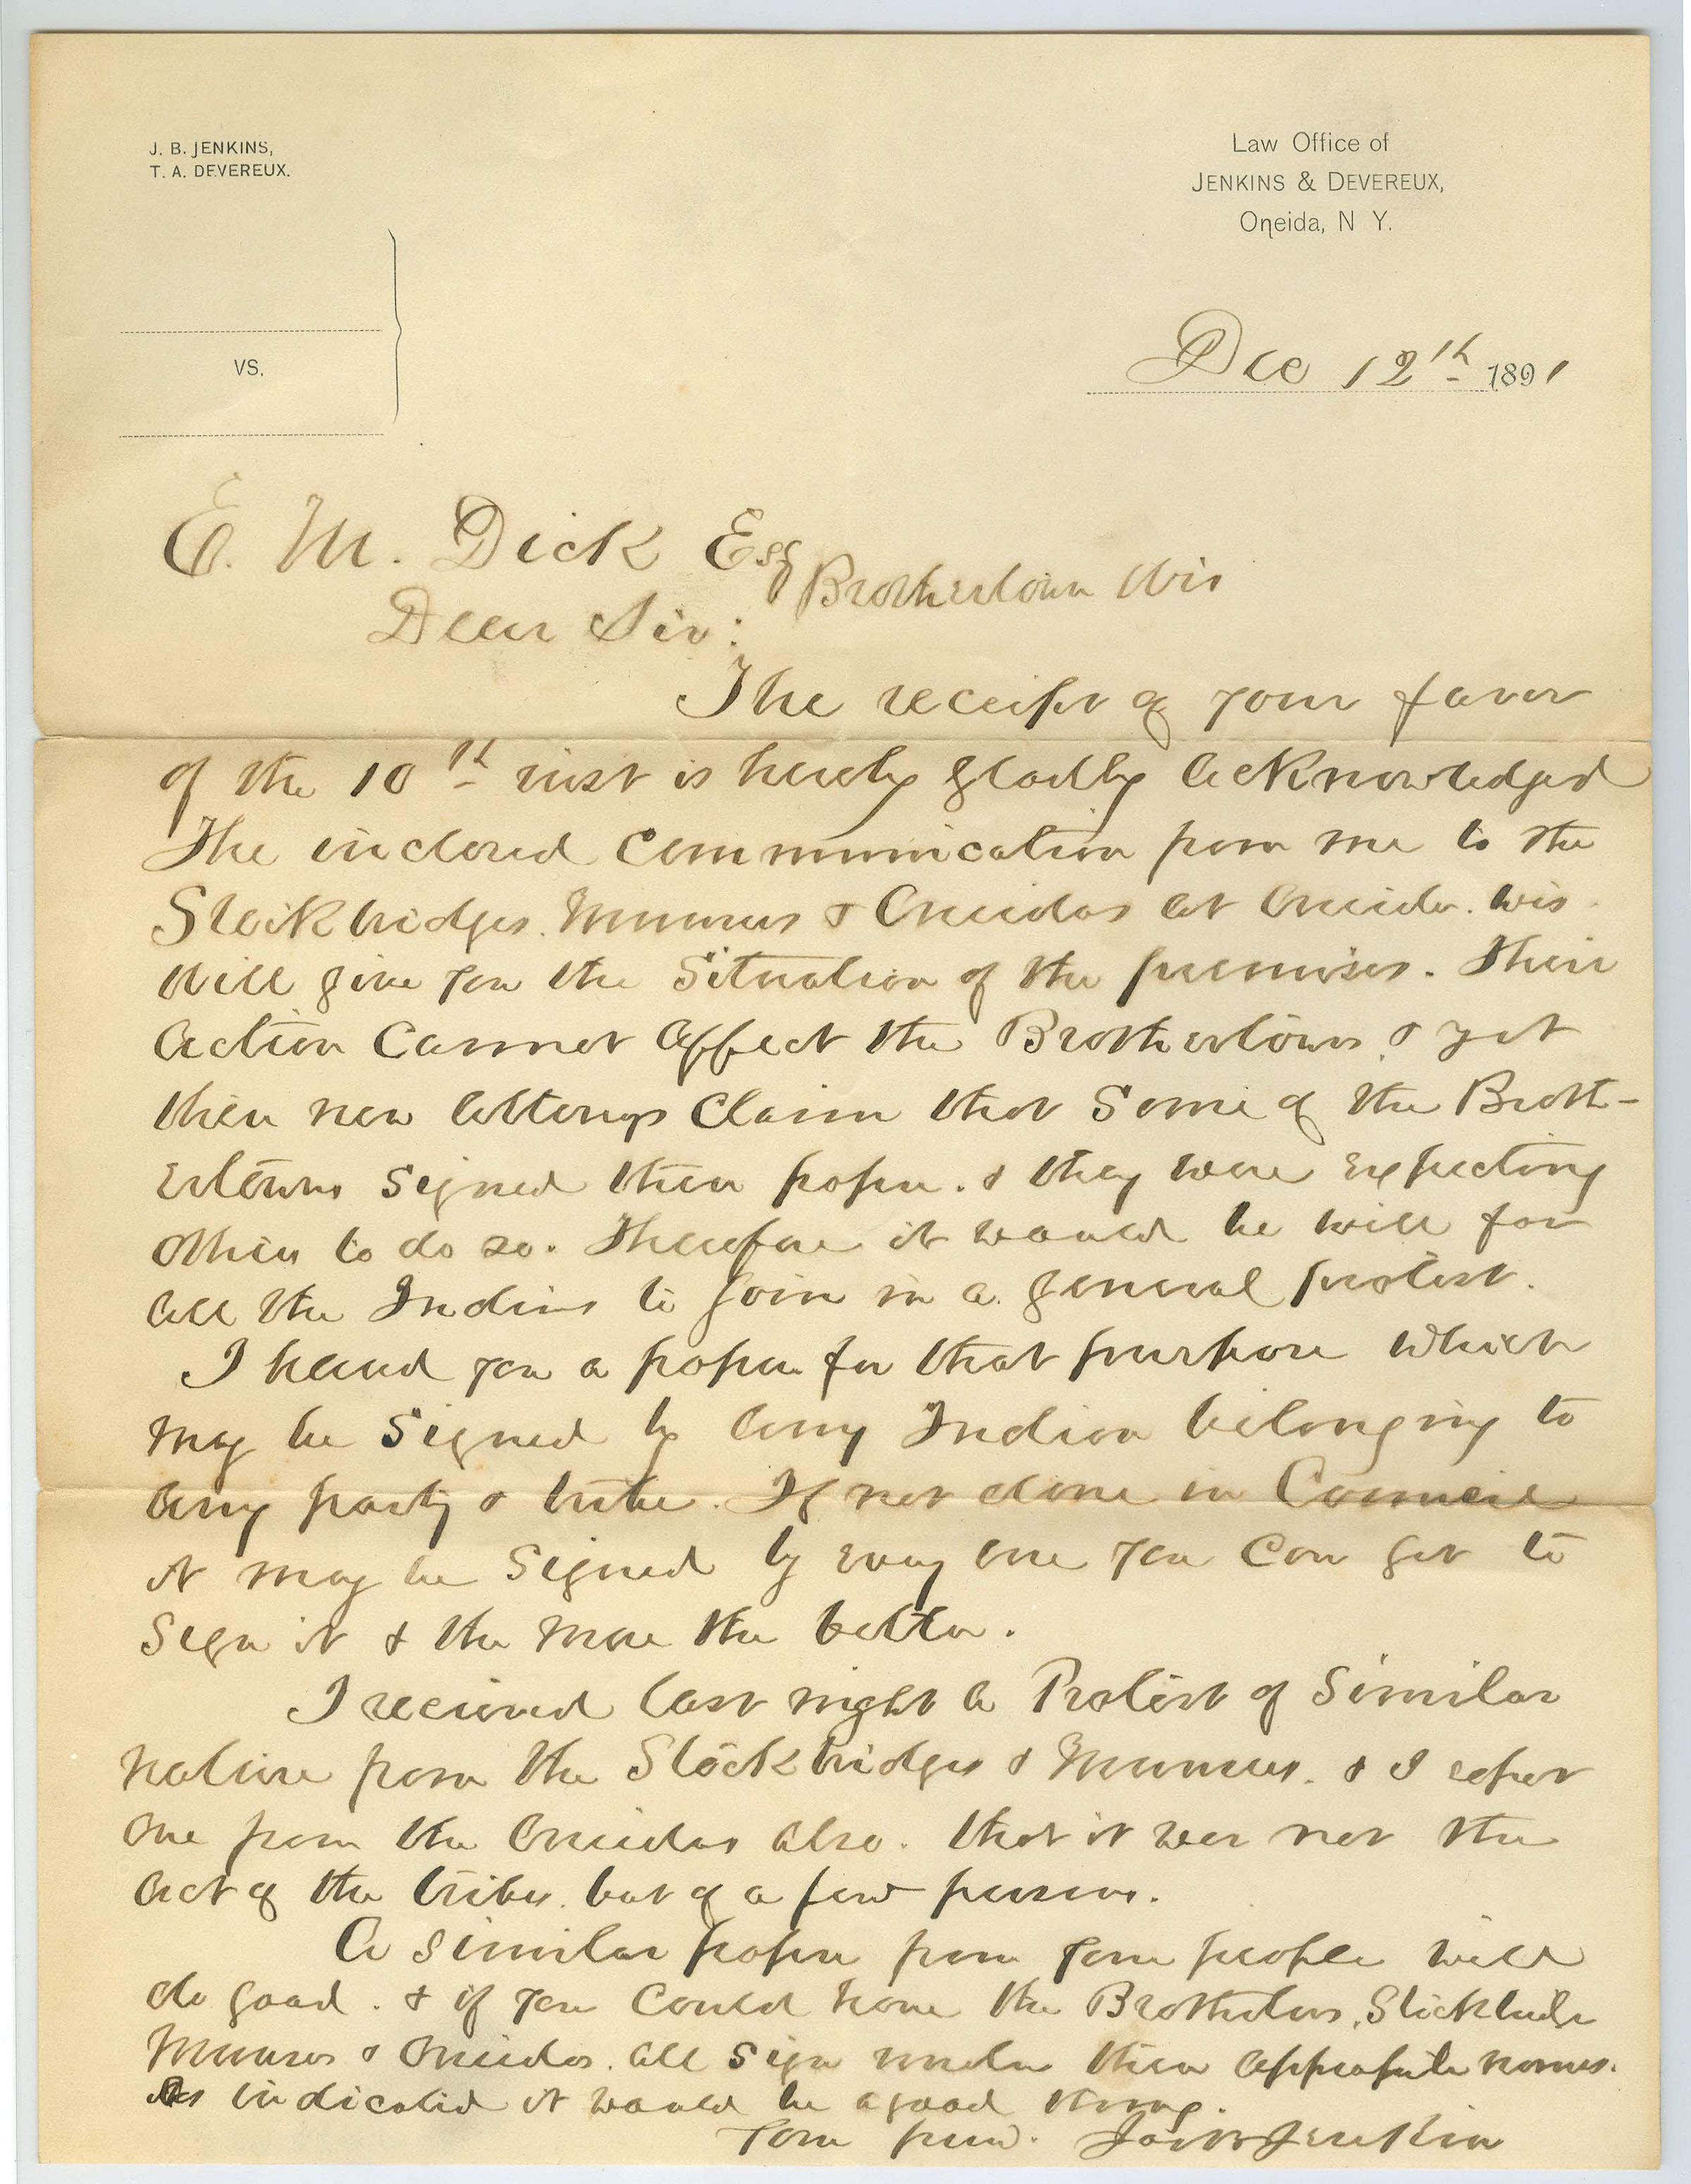 J. B. JENKINS,
T. A. DEVEREUX.
Law Office of
JENKINS & DEVEREUX,
Oneida, N Y.
VS.
Dec 12th 1891
E. M. Dick Esq
Brothertown Wis
Dear Sir:
The receipt of your favor
of the 10th inst is hereby gladly acknowledged
The inclosed communication from me to the
Stockbridges. Munsees & Oneidas at Oneida. Wis.
Will give you the situation of the premises. Their
action cannot affect the Brothertowns. & yet
their new attorneys claim that some of the Broth-
ertowns signed their paper. & they were expecting
others to do so. Therefore it would be well for
all the Indians to join in a general protest.
I hand you a paper for that purpose which
may be signed by any Indian belonging to
any party or tribe. If not done in Council
it may be signed by every one you can get to
sign it & the more the better.
I received last night a Protest of similar
nature from the Stockbridges & Munsees. & I expect
one from the Oneidas also. that it was not the
act of the tribes. but of a few persons.
A similar paper from your people will
do good. & if you could have the Brothertowns, Stockbridge
Munsees & Oneidas. all sign under their appropriate names.
As indicated it would be a good thing.
Your friend. Jas B Jenkins